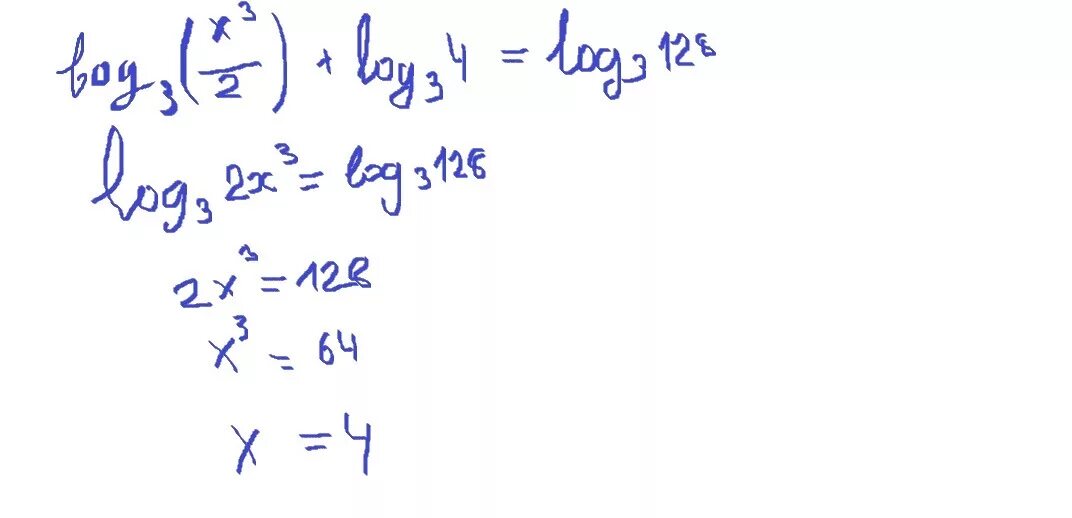 log₃(x³/2) + log₃4 = log₃128
log₃2x³ = log₃128
2x³ = 128
x³ = 64
x = 4